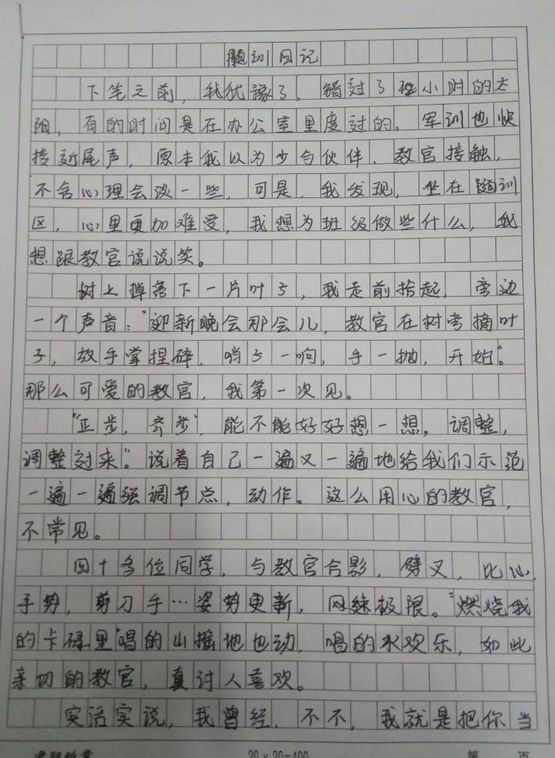 随训日记
下笔之前，我优豫了。错过了很小时的太
阳，有的时间是在办公室里度过的。军训也快
接近尾声，原本我以为少与伙伴、教官接触，
不舍心理会淡一些，可是，我发现，坐在随训
区，心里更加难受，我想为班级做些什么，我
想跟教官说说笑。
树上弹落下一片叶子，我走前拾起，旁边
一个声音："迎新晚会那会儿，教官在树旁摘叶
子，放手掌捏碎，哨子一响，手一抛，开始"。
那么可爱的教官，我第一次见。
"正步，齐步"，能不能好好想一想，调整，
调整过来"。说着自己一遍又一遍地给我们示范
一遍一遍强调节点，动作。这么用心的教官，
不常见。
四十多位同学，与教官合影，劈叉，比心
手势，剪刀手…姿势更新，网络极限。"燃烧我
的卡碌里"唱的山摇地也动，唱的水欢乐，如此
亲切的教官，真讨人喜欢。
实话实说，我曾经，不不，我就是把你当
20×20=400
第 页